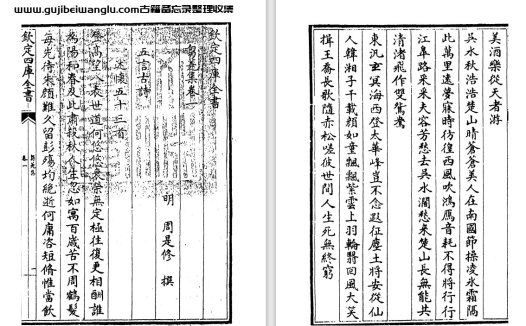 www.gujibeiwanglu.com古籍备忘录整理收集
欽定四庫全書
芻蕘集卷一
明 周是修 撰
五言古詩
述懷五十三首
登高望八表世道何悠悠衰榮無定極往復更相酬誰
為陽和春及此肅殺秋人生忽如寓百歲苦不周鶴髮
每先侍朱顏難久留彭殤均絶逝何庸咨短脩惟當飲
欽定四庫全書
芻蕘集
卷一
一
美酒樂從天者游
吳水秋浩浩楚山晴蒼蒼美人在南國節操凌氷霜隔
此萬里遠夢寐時彷徨西風吹鴻鴈音耗不得將行行
江臯路采采夫容芳愁去吳水濶愁來楚山長無能共
清渚飛作雙鴛鴦
東汎玄冥海西登太華峰豈不念遐征塵土將安從仙
人韓湘子千載顔如童飄飄紫雲上羽輪翳回風大笑
揖王喬長歌隨赤松嗟彼世間人生死無終窮